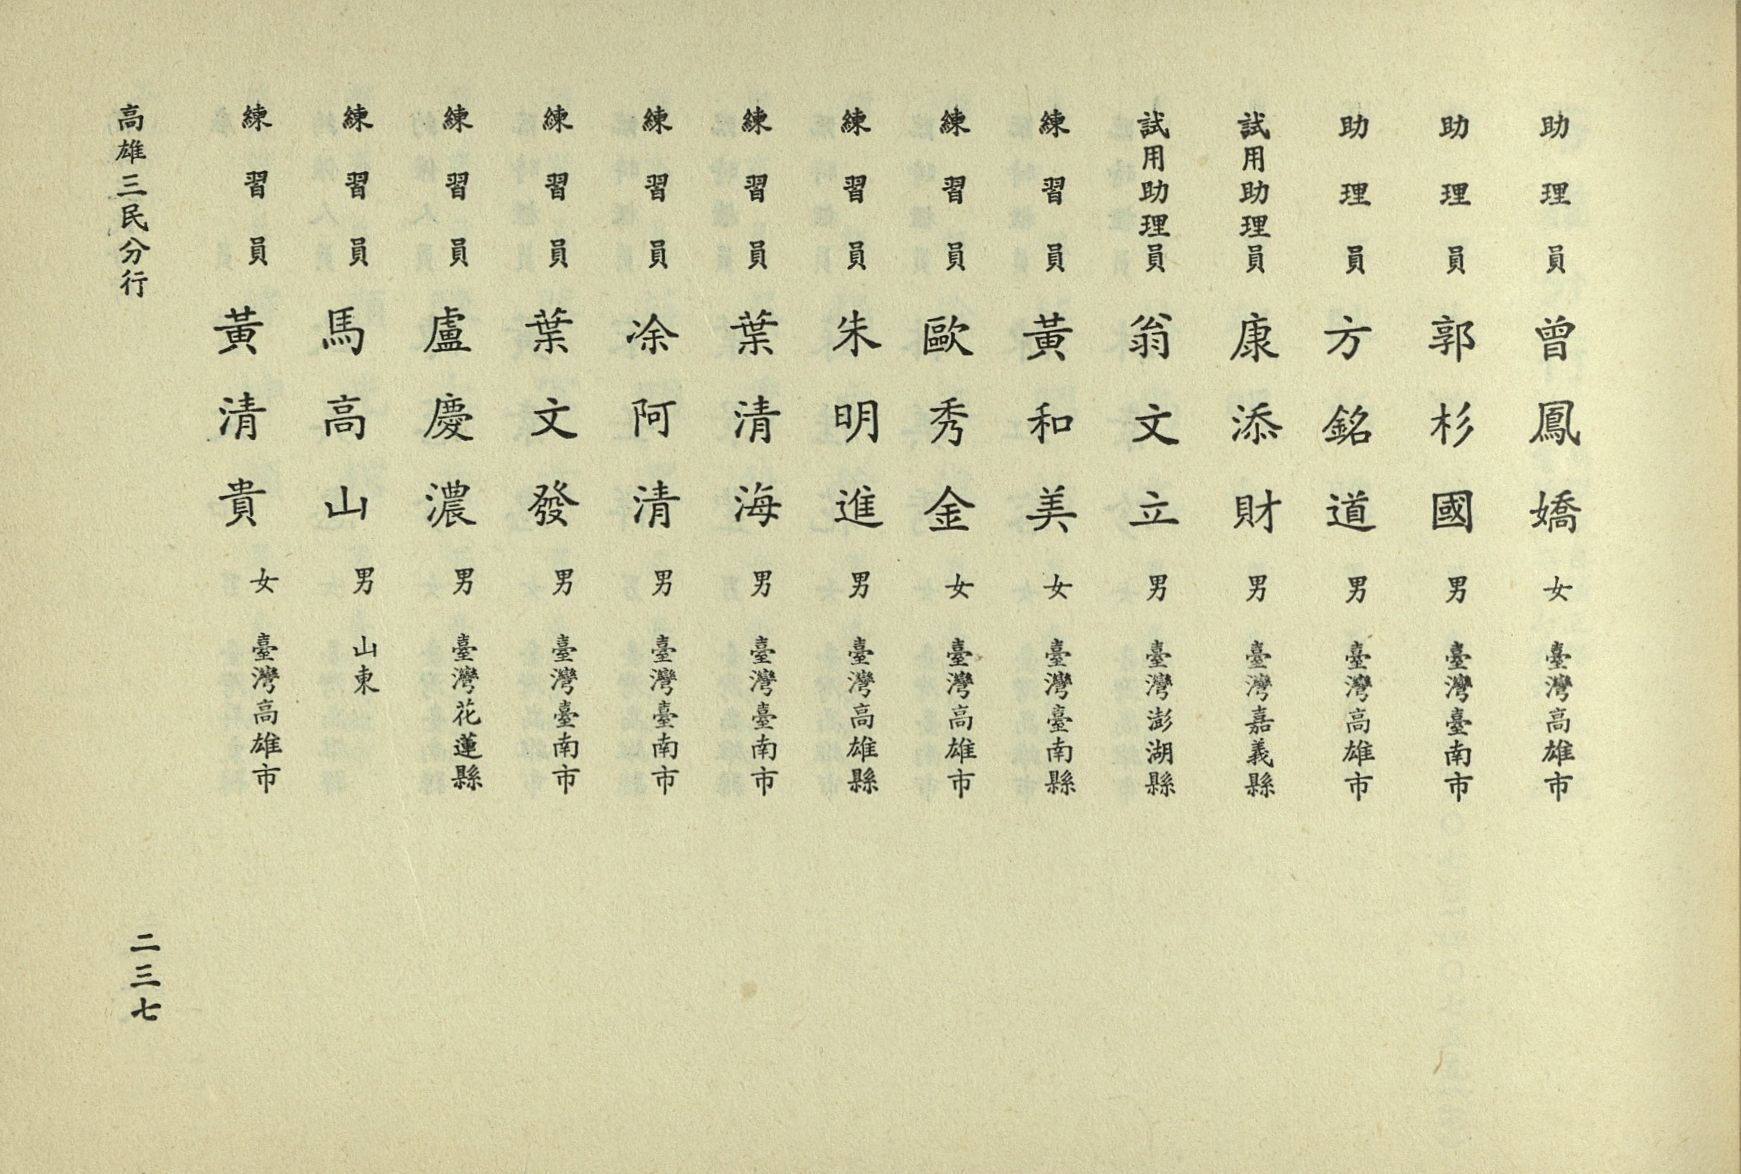 助理員 曾鳳嬌 女 臺灣高雄市
助理員 郭杉國 男 臺灣臺南市
助理員 方銘道 男 臺灣高雄市
試用助理員 康添財 男 臺灣嘉義縣
試用助理員 翁文立 男 臺灣澎湖縣
練習員 黃和美 女 臺灣臺南縣
練習員 歐秀金 女 臺灣高雄市
練習員 朱明進 男 臺灣高雄縣
練習員 葉清海 男 臺灣臺南市
練習員 凃阿清 男 臺灣臺南市
練習員 葉文發 男 臺灣臺南市
練習員 盧慶濃 男 臺灣花蓮縣
練習員 馬高山 男 山東
練習員 黃清貴 女 臺灣高雄市
高雄三民分行 二三七